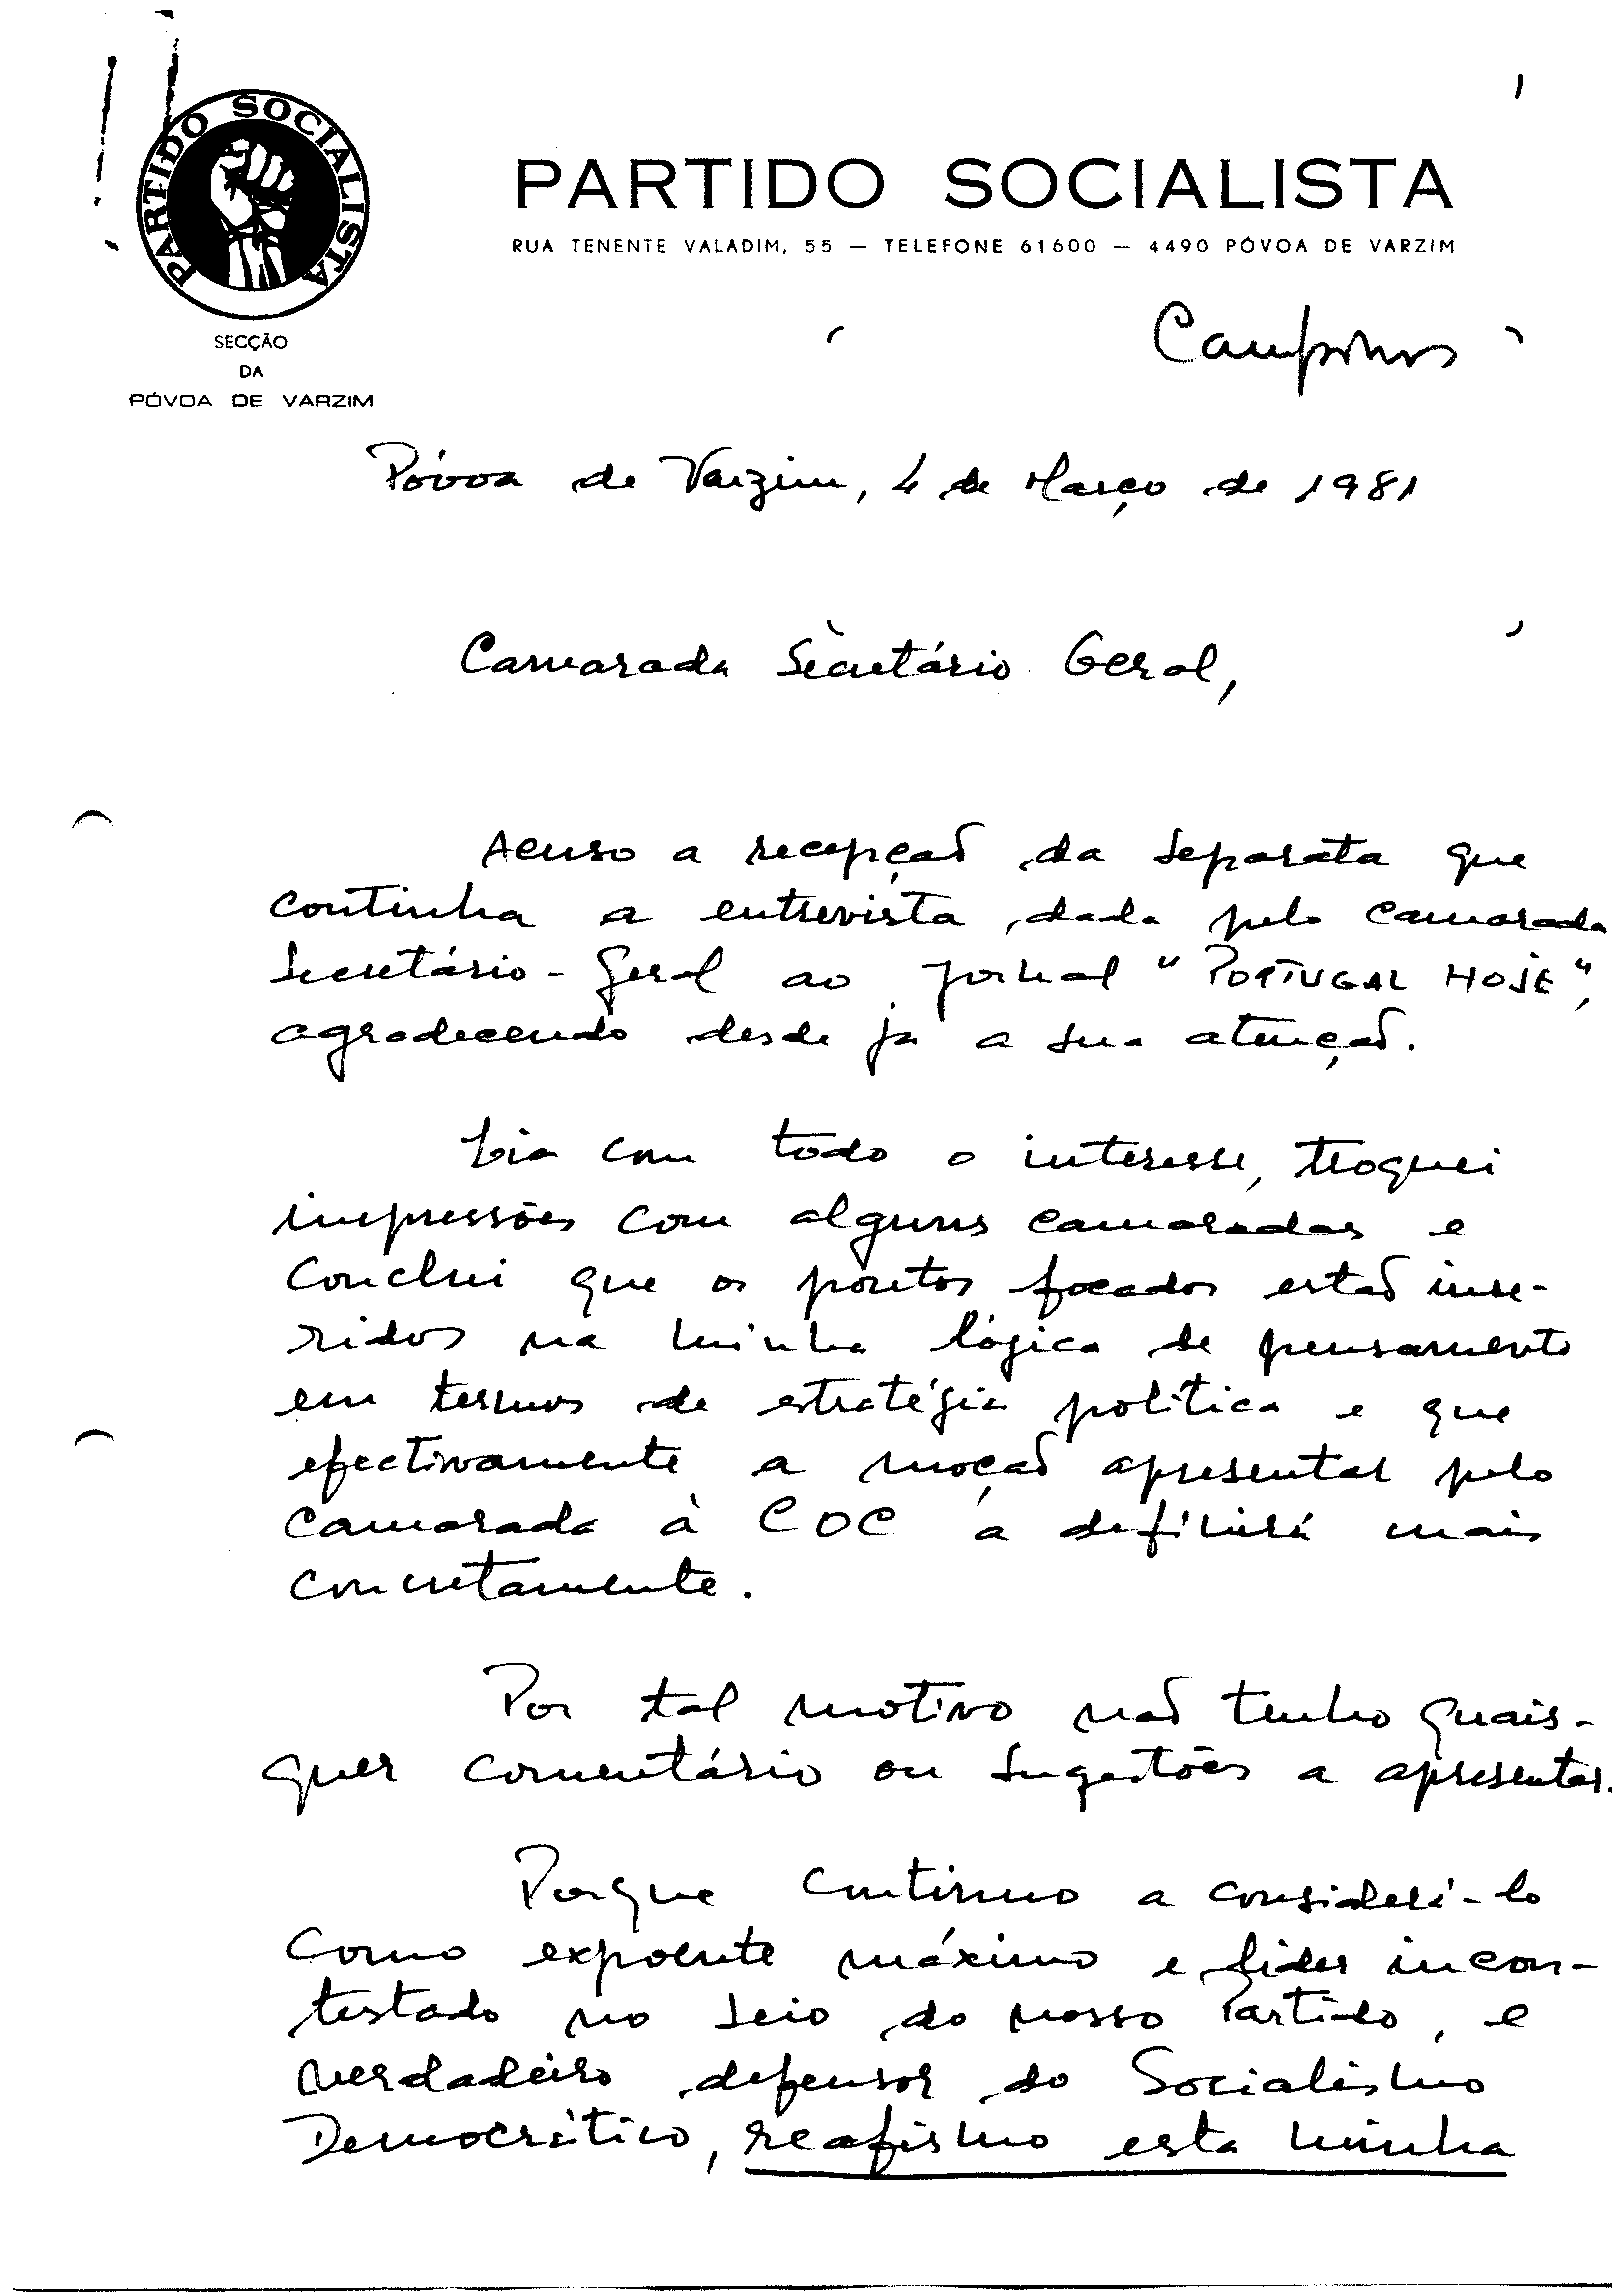 PARTIDO SOCIALISTA
PARTIDO SOCIALISTA
RUA TENENTE VALADIM, 55 — TELEFONE 61600 — 4490 PÓVOA DE VARZIM
SECÇÃO
DA
PÓVOA DE VARZIM
Póvoa de Varzim, 4 de Março de 1981
Camarada Secretário Geral,
Acuso a recepção da separata que
continha a entrevista dada pelo camarada
Secretário-geral ao jornal "PORTUGAL HOJE",
agradecendo desde já a sua atenção.
Lia com todo o interesse, troquei
impressões com alguns camaradas e
conclui que os pontos focados estão inse-
ridos na minha lógica de pensamento
em termos de estratégia política e que
efectivamente a moção apresentar pelo
camarada à COC a definirá mais
concretamente.
Por tal motivo não tenho quais-
quer comentário ou sugestões a apresentar.
Porque continuo a considerá-lo
como expoente máximo e líder incon-
testado no seio do nosso Partido, e
verdadeiro defensor do Socialismo
Democrático, reafirmo esta minha